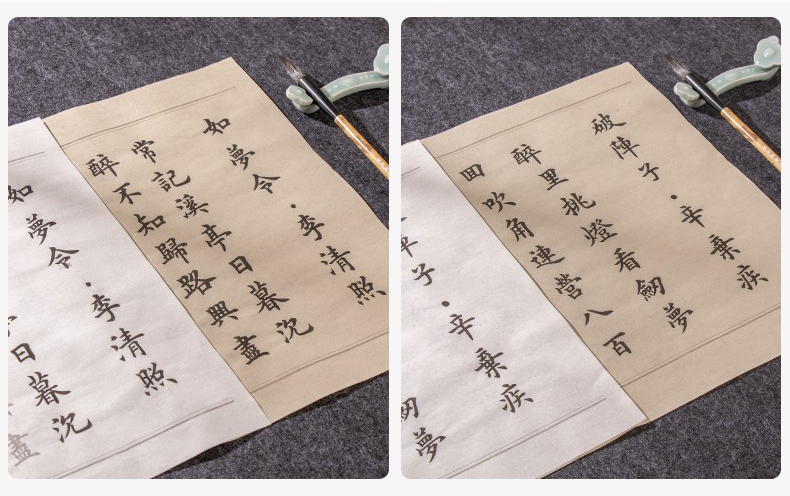 如夢令·李清照
常記溪亭日暮沉
醉不知歸路興盡
如夢令·李清照
日暮沉
盡
破陣子·辛棄疾
醉里挑燈看劒夢
回吹角連營八百
子·辛棄疾
夢